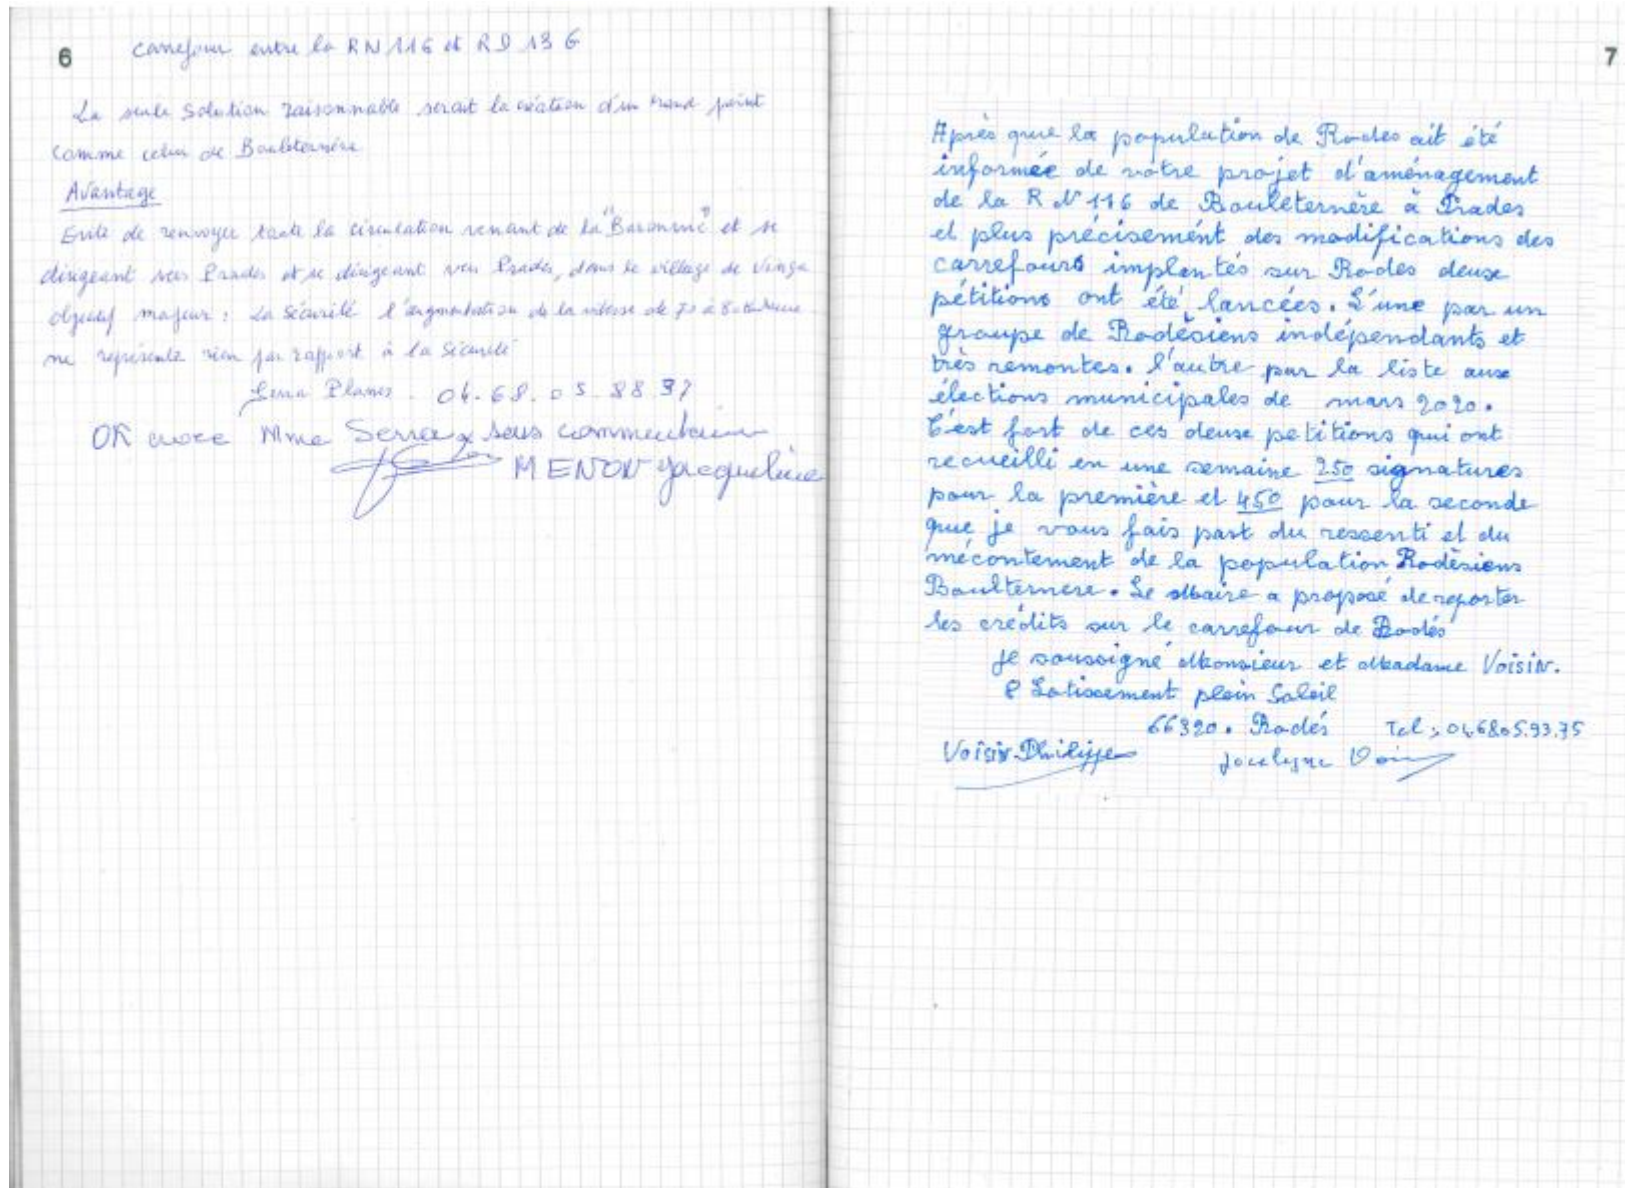 6
Carrefour entre la RN 116 et RD 13 G
La seule Solution raisonnable serait la création d'un rond point
comme celui de Bouleternère
Avantage
Evite de renvoyer toute la circulation venant de la "Baronnie" et se
dirigeant vers Prades et se dirigeant vers Prades, dans le village de Vinça
objectif majeur : La sécurité l'augmentation de la vitesse de 70 à 80
ne représente rien par rapport à la Sécurité
Serra Planes . 04.68.05.88.37
OK avec Mme Serra sous
MENON Jacqueline
7
Après que la population de Rodes ait été
informée de votre projet d'aménagement
de la R N 116 de Bouleternère à Prades
et plus précisément des modifications des
carrefours implantés sur Rodes deux
pétitions ont été lancées. L'une par un
groupe de Rodésiens indépendants et
très remontes. l'autre par la liste aux
élections municipales de mars 2020.
C'est fort de ces deux petitions qui ont
recueilli en une semaine 250 signatures
pour la première et 450 pour la seconde
que je vous fais part du ressenti et du
mécontement de la population Rodèsiens
Boulternere. Le Maire a proposé de reporter
les crédits sur le carrefour de Rodés
je soussigné Monsieur et Madame Voisin.
8 Lotissement plein Soleil
66320. Rodés Tel : 04.68.05.93.75
Voisin Philippe Jocelyne Voisin